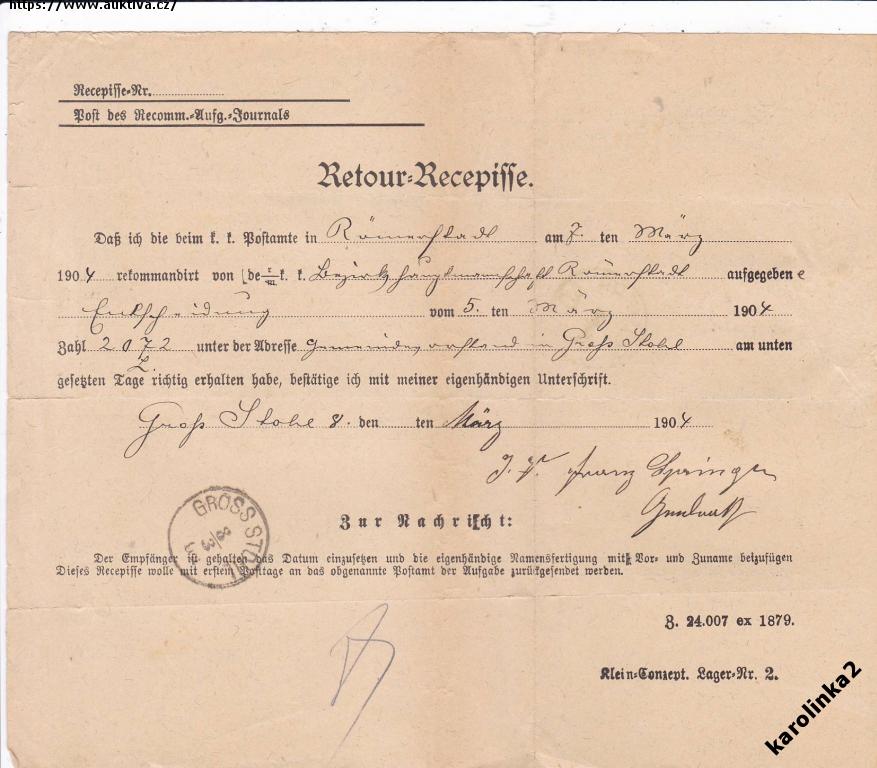 https://www.auktiva.cz/
Recepisse-Nr.
Post des Recomm.-Aufg.-Journals
Retour-Recepisse.
Daß ich die beim k. k. Postamte in Römerstadt am 7. ten März
1904 rekommandirt von de k. k. Bezirkshauptmannschaft Römerstadt aufgegebene
Entscheidung vom 5. ten März 1904
Zahl 2072 unter der Adresse Gemeindevorstand in Groß Stohl am unten
gesetzten Tage richtig erhalten habe, bestätige ich mit meiner eigenhändigen Unterschrift.
Groß Stohl 8. den ten März 1904
J. V. Franz Springer
GROSS STOHL
8/3
Zur Nachricht:
Der Empfänger ist gehalten das Datum einzusetzen und die eigenhändige Namensfertigung mit Vor- und Zuname beizufügen
Dieses Recepisse wolle mit erstem Posttage an das obgenannte Postamt der Aufgabe zurückgesendet werden.
Z. 24.007 ex 1879.
Klein-Conzept. Lager-Nr. 2.
karolinka2